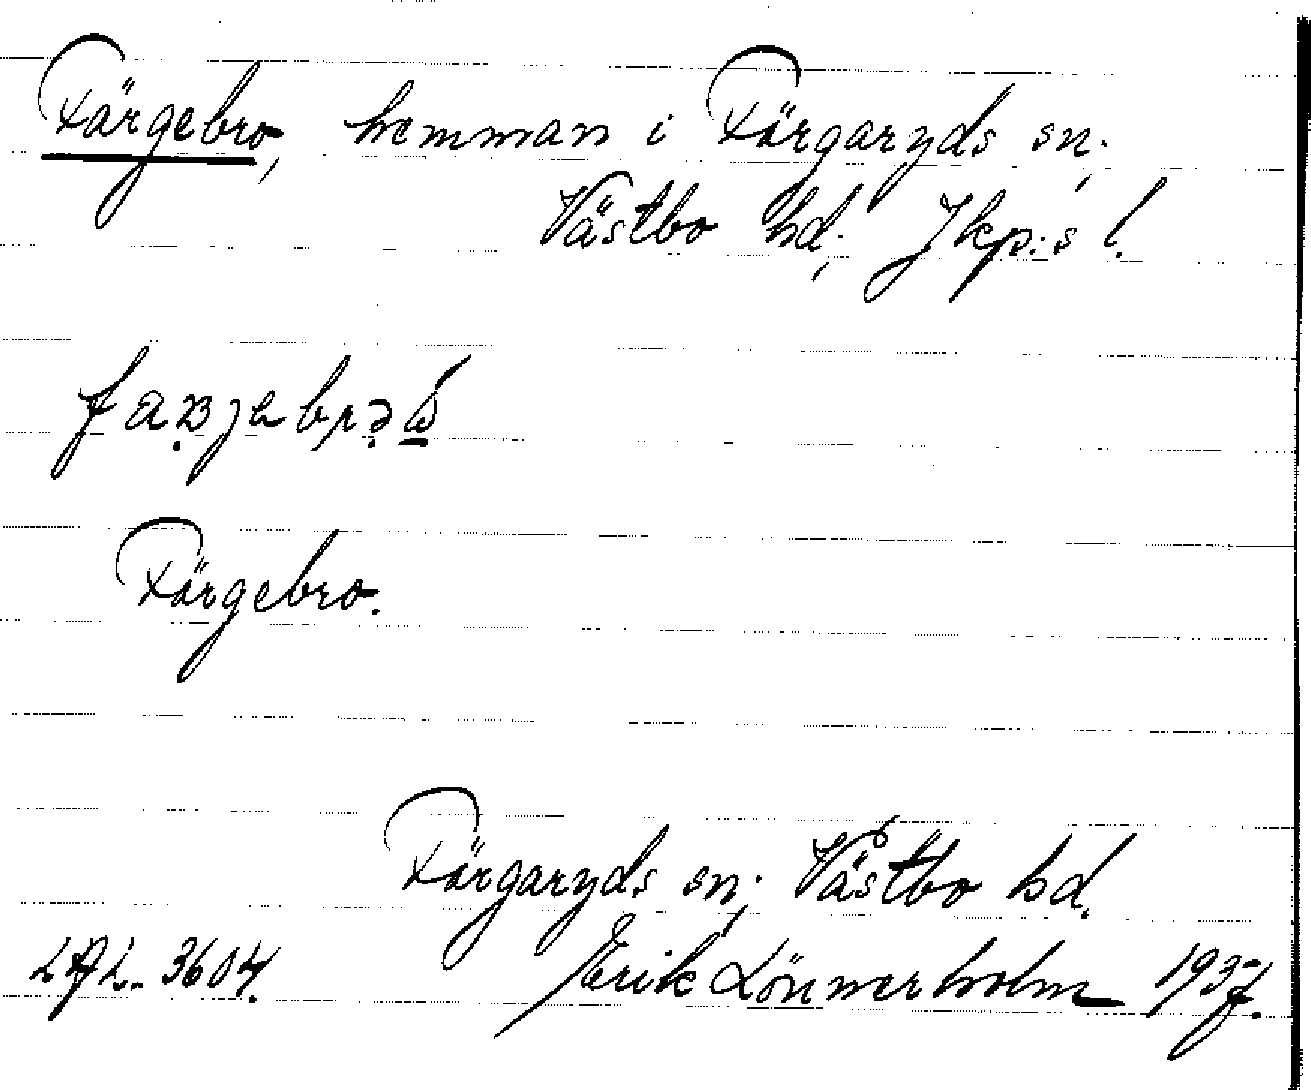 Färgebro, hemman i Färgaryds sn;
Västbo hd; Jkp:s l.
Färgebro.
Färgaryds sn; Västbo hd.
LAL. 3604. Erik Lönnerholm 1937.